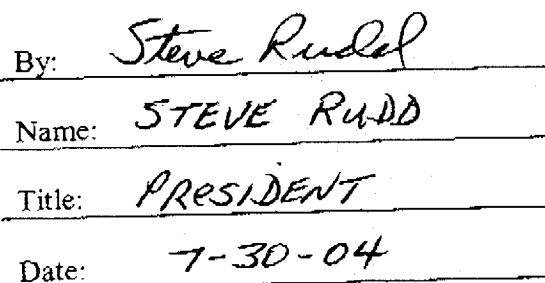 By: Steve Rudd
Name: STEVE RUDD
Title: PRESIDENT
Date: 7-30-04